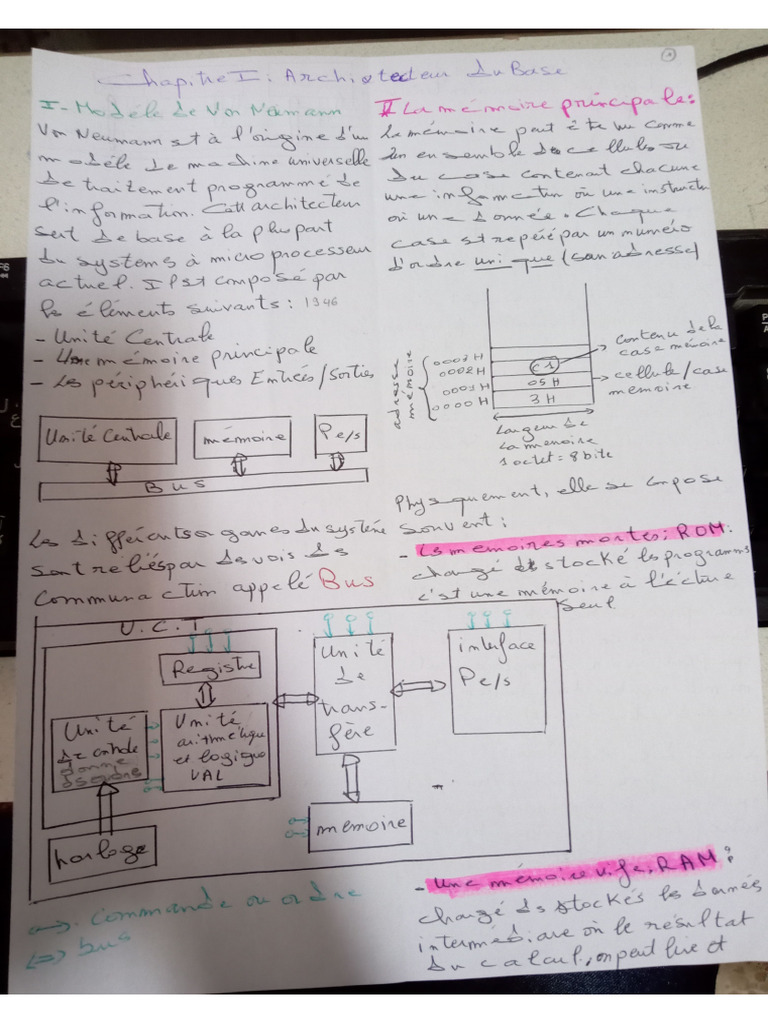 Chapitre I: Architecteur du Base
I- Modèle de Von Neumann
Von Neumann st à l'origine d'un
modèle de machine universelle
de traitement programmé de
l'information. Cett architecteur
sert de base à la plupart
du systèmes à micro processeur
actuel. Il st composé par
les éléments suivants: 1946
- Unité Centrale
- Une mémoire principale
- Les périphériques Entrées/Sorties
Unité Centrale
mémoire
Pe/s
Bus
Les différents organes du système
sont reliés par des vois de
communication appelé Bus
U.C.T
Registre
Unité
de
donne
Unité
arithmétique
et logique
UAL
horloge
Unité
de
trans-
fère
mémoire
interface
Pe/s
commande ou ordre
bus
II La mémoire principale:
La mémoire peut être vu comme
un ensemble de cellules ou
du case contenant chacune
une information où une instructn
où une donnée. Chaque
case st repéré par un numéro
d'ordre unique (son adresse)
adresse
mémoire
0003 H
0002 H
0001 H
0000 H
C1
05 H
3 H
contenu de la
case mémoire
cellule/case
mémoire
Largeur de
la mémoire
1 octet = 8 bits
Physiquement, elle se compose
souvent:
- Les mémoires mortes; ROM:
chargé stocké les programms
c'est une mémoire à l'écture
seul
- Une mémoire vife; RAM:
chargé ds stockés les données
intermédiare où le résultat
du calcul, on peut lire et